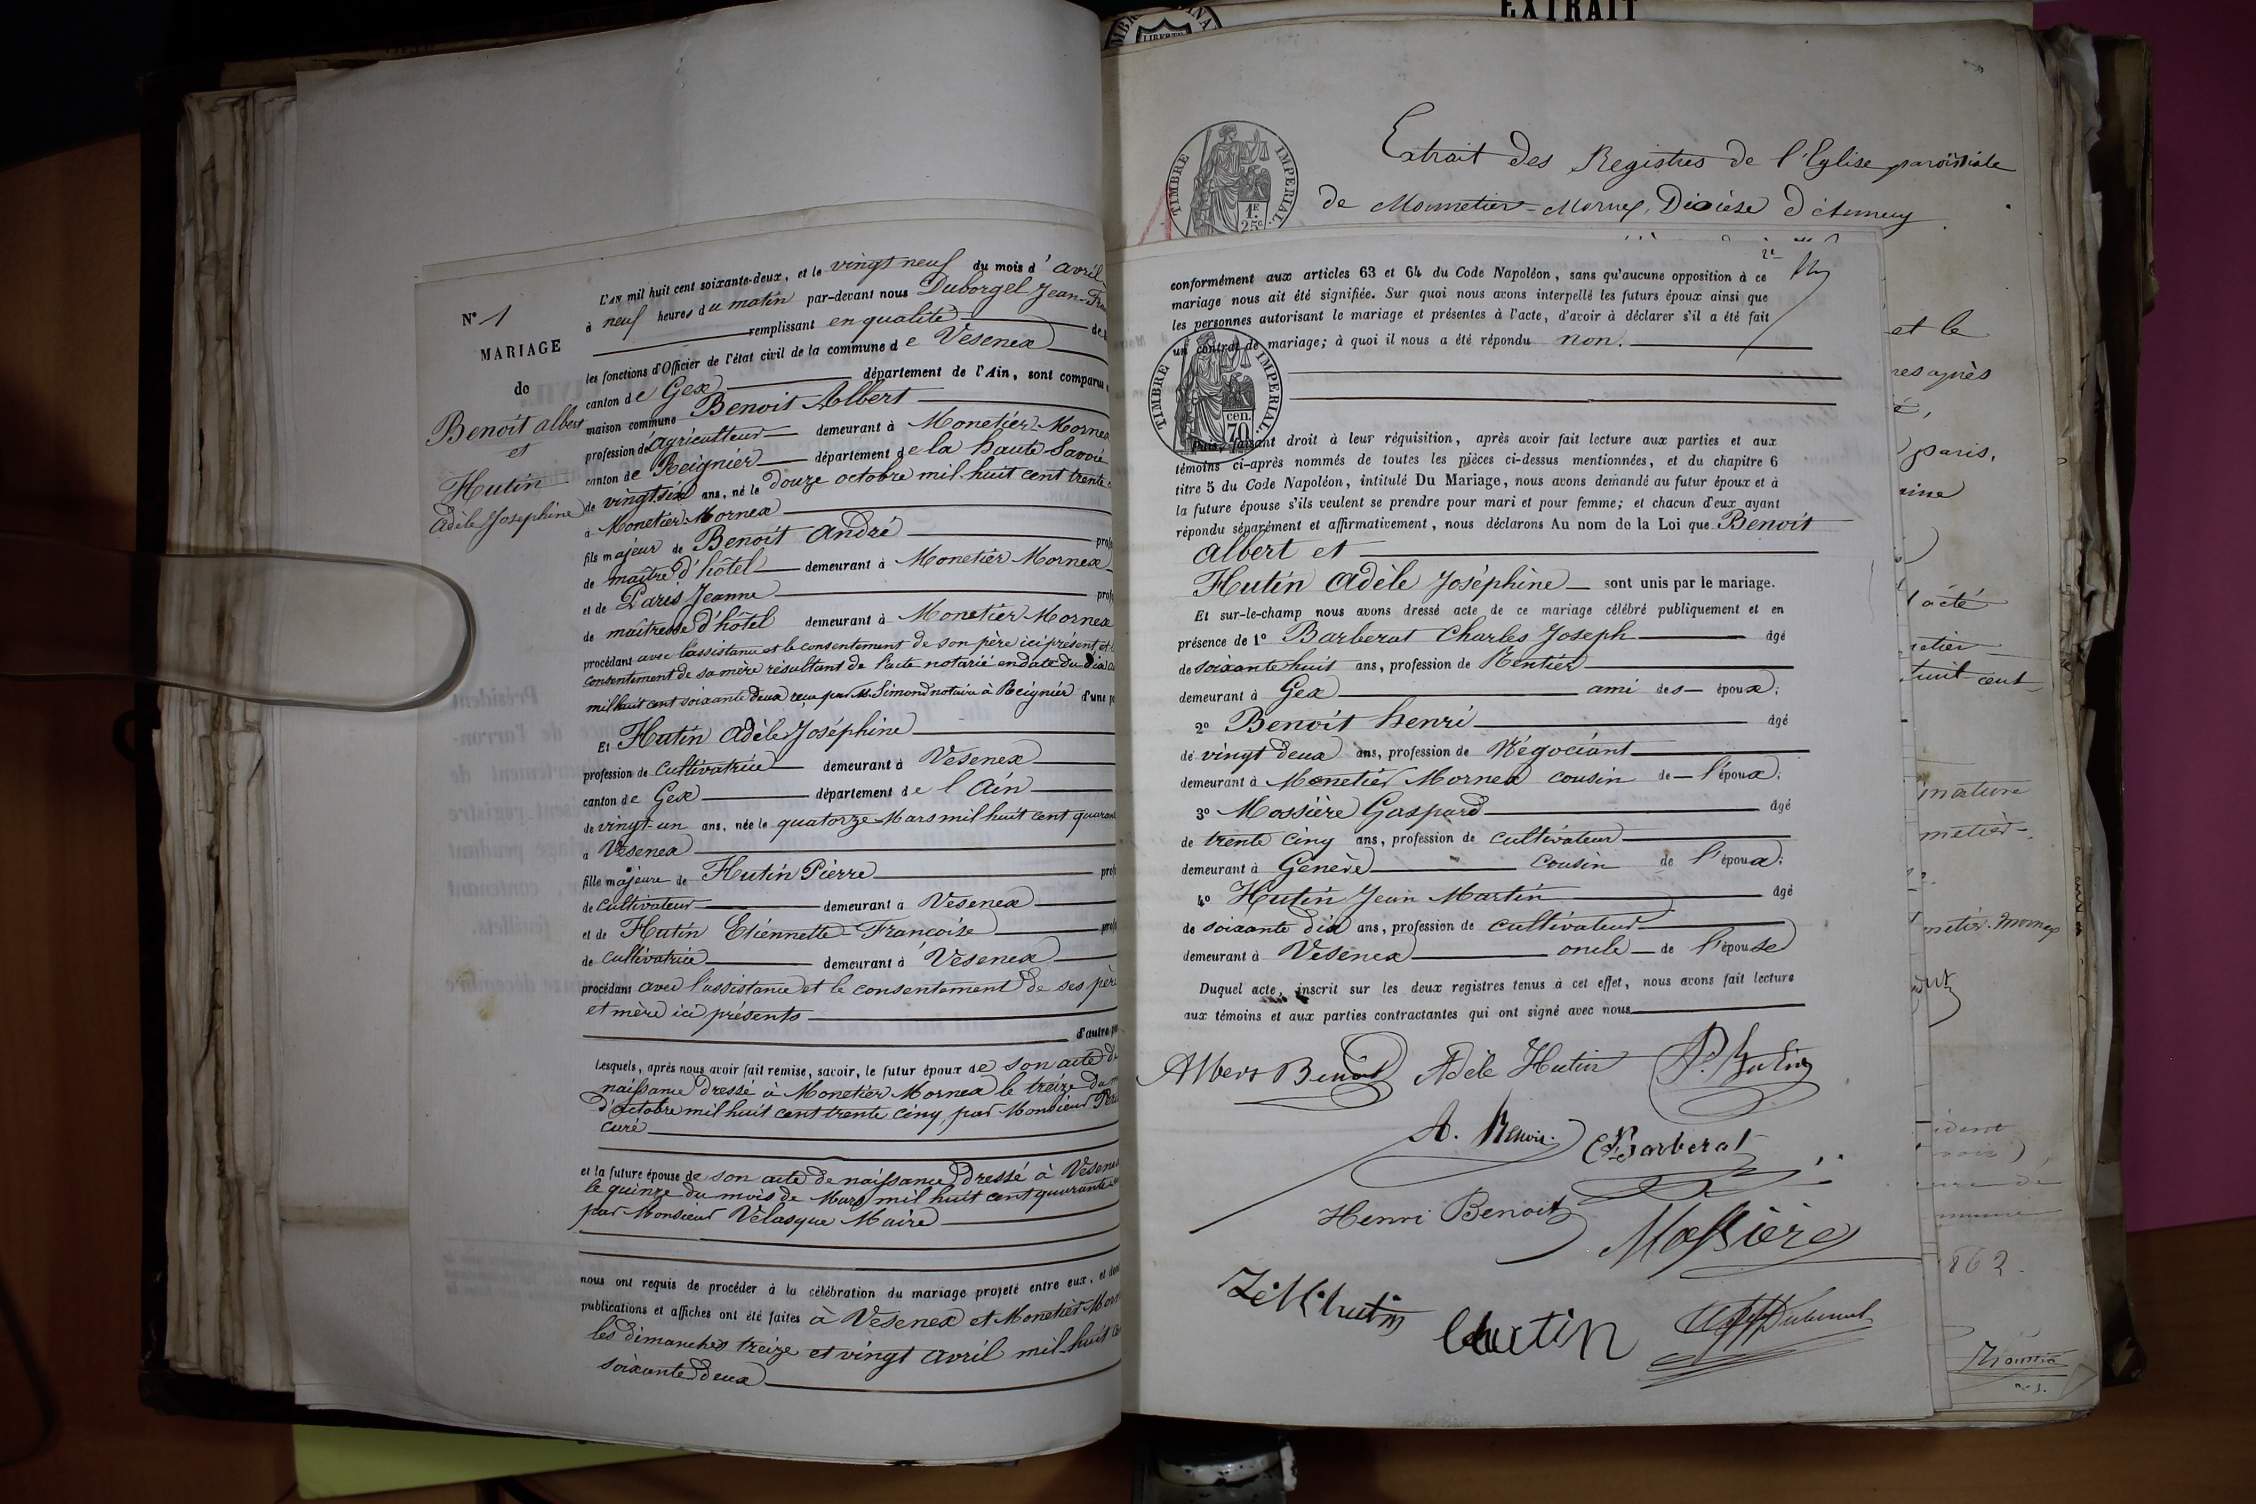 EXTRAIT
N° 1
MARIAGE
de
Benoit albert
et
Hutin
Adèle Josephine
L'AN mil huit cent soixante-deux, et le vingt neuf du mois d'avril
à neuf heures du matin par-devant nous Duborgel Jean-
remplissant en qualité de
les fonctions d'Officier de l'état civil de la commune de Vesenex
canton de Gex département de l'Ain, sont comparus
maison commune Benoit Albert
profession d'agriculteur demeurant à Monetier-Mornex
canton de Reignier département de la haute Savoie
de vingt six ans, né le douze octobre mil huit cent trente
à Monetier Mornex
fils majeur de Benoit André
de maître d'hôtel demeurant à Monetier Mornex
et de Paris Jeanne
de maîtresse d'hôtel demeurant à Monetier Mornex
procédant avec l'assistance et le consentement de son père ici présent, et
consentement de sa mère résultant de l'acte notarié en date du dix
mil huit cent soixante deux reçu par M. Simond notaire à Reignier d'une
Et Hutin Adèle Joséphine
profession de cultivatrice demeurant à Vesenex
canton de Gex département de l'Ain
de vingt-un ans, née le quatorze Mars mil huit cent
à Vesenex
fille majeure de Hutin Pierre
de cultivateur demeurant à Vesenex
et de Hutin Etiennette Françoise
de cultivatrice demeurant à Vesenex
procédant avec l'assistance et le consentement de ses père
et mère ici présents
d'autre
Lesquels, après nous avoir fait remise, savoir, le futur époux de son acte de
naissance dressé à Monetier Mornex le treize du
d'octobre mil huit cent trente cinq, par Monsieur
curé
et la future épouse de son acte de naissance dressé à Vesenex
le quinze du mois de Mars mil huit cent quarante
par Monsieur Velasque Maire
nous ont requis de procéder à la célébration du mariage projeté entre eux, et dont
publications et affiches ont été faites à Vesenex et Monetier
les dimanches treize et vingt avril mil-huit
soixante deux
TIMBRE IMPERIAL.
1F
25c
Extrait des Registres de l'Eglise paroissiale
de Monnetier-Mornex, Diocèse d'Annecy
conformément aux articles 63 et 64 du Code Napoléon, sans qu'aucune opposition à ce
mariage nous ait été signifiée. Sur quoi nous avons interpellé les futurs époux ainsi que
les personnes autorisant le mariage et présentes à l'acte, d'avoir à déclarer s'il a été fait
un contrat de mariage; à quoi il nous a été répondu non.
TIMBRE IMPERIAL.
cen.
70
Puis, faisant droit à leur réquisition, après avoir fait lecture aux parties et aux
témoins ci-après nommés de toutes les pièces ci-dessus mentionnées, et du chapitre 6
titre 5 du Code Napoléon, intitulé Du Mariage, nous avons demandé au futur époux et à
la future épouse s'ils veulent se prendre pour mari et pour femme; et chacun d'eux ayant
répondu séparément et affirmativement, nous déclarons Au nom de la Loi que Benoit
albert et
Hutin Adèle Joséphine sont unis par le mariage.
Et sur-le-champ nous avons dressé acte de ce mariage célébré publiquement et en
présence de 1° Barberat Charles Joseph âgé
de soixante huit ans, profession de Rentier
demeurant à Gex ami des époux;
2° Benoit henri âgé
de vingt deux ans, profession de Négociant
demeurant à Monetier Mornex cousin de l'époux;
3° Mossière Gaspard âgé
de trente cinq ans, profession de cultivateur
demeurant à Genève cousin de l'époux;
4° Hutin Jean Martin âgé
de soixante dix ans, profession de cultivateur
demeurant à Vesenex oncle de l'épouse
Duquel acte, inscrit sur les deux registres tenus à cet effet, nous avons fait lecture
aux témoins et aux parties contractantes qui ont signé avec nous
Albert Benoit Adèle Hutin P. Hutin
A. Benoit Barberat
Henri Benoit Mossière
hutin hutin
et le
paris,
862